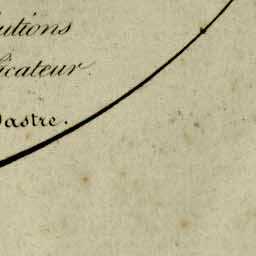 lutions
licateur.
dastre.